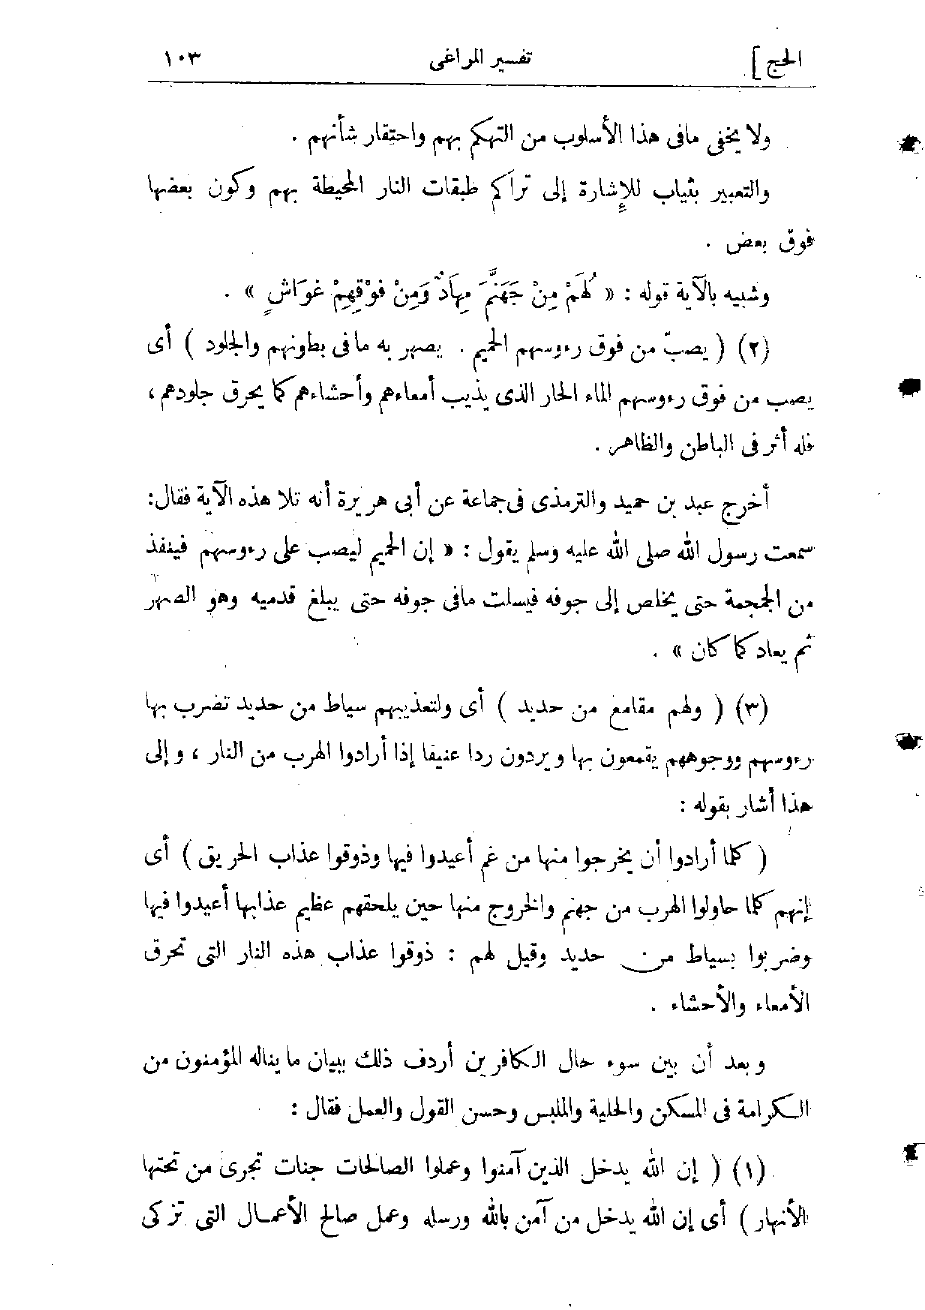 الحج] تفسير المراغى ١٠٣
ولا يخفى مافى هذا الأسلوب من التهكم بهم واحتقار شأنهم .
والتعبير بثياب للإشارة إلى تراكم طبقات النار المحيطة بهم وكون بعضها
فوق بعض .
وشبيه بالآية قوله : « لَهُمْ مِنْ جَهَنَّمَ مِهَادٌ وَمِنْ فَوْقِهِمْ غَوَاشٍ » .
(٢) ( يصبّ من فوق رءوسهم الحميم . يصهر به ما فى بطونهم والجلود ) أى
يصب من فوق رءوسهم الماء الحار الذى يذيب أمعاءهم وأحشاءهم كما يحرق جلودهم ،
فله أثر فى الباطن والظاهر .
أخرج عبد بن حميد والترمذى فى جماعة عن أبى هريرة أنه تلا هذه الآية فقال :
سمعت رسول الله صلى الله عليه وسلم يقول : « إن الحميم ليصب على رءوسهم فينفذ
من الجمجمة حتى يخلص إلى جوفه فيسلت مافى جوفه حتى يبلغ قدميه وهو الصهر
ثم يعاد كما كان » .
(٣) ( ولهم مقامع من حديد ) أى ولتعذيبهم سياط من حديد تضرب بها
رءوسهم ووجوههم يقمعون بها ويردون ردا عنيفا إذا أرادوا الهرب من النار ، وإلى
هذا أشار بقوله :
( كلما أرادوا أن يخرجوا منها من غم أعيدوا فيها وذوقوا عذاب الحريق ) أى
إنهم كلما حاولوا الهرب من جهنم والخروج منها حين يلحقهم عظيم عذابها أعيدوا فيها
وضربوا بسياط من حديد وقيل لهم : ذوقوا عذاب هذه النار التى تحرق
الأمعاء والأحشاء .
وبعد أن بين سوء حال الكافرين أردف ذلك ببيان ما يناله المؤمنون من
الكرامة فى المسكن والحلية والملبس وحسن القول والعمل فقال :
(١) ( إن الله يدخل الذين آمنوا وعملوا الصالحات جنات تجرى من تحتها
الأنهار ) أى إن الله يدخل من آمن بالله ورسله وعمل صالح الأعمال التى تزكى